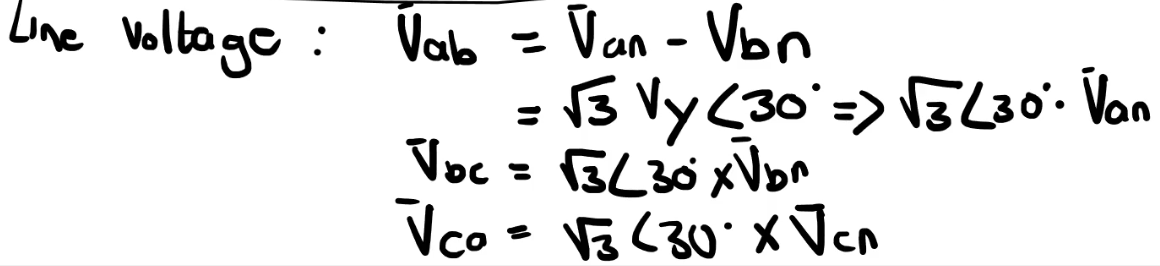 Line Voltage : V̄ab = V̄an - Vbn
= √3 Vy ∠30° => √3∠30° · V̄an
V̄bc = √3∠30° × V̄bn
V̄ca = √3 ∠30° × V̄cn